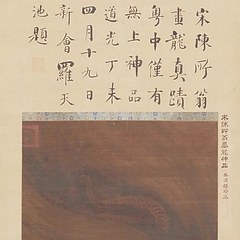 宋陳所翁
畫龍真蹟
粵中僅有
無上神品
道光丁未
四月十九日
新會羅天
池題
宋陳所翁墨龍神品